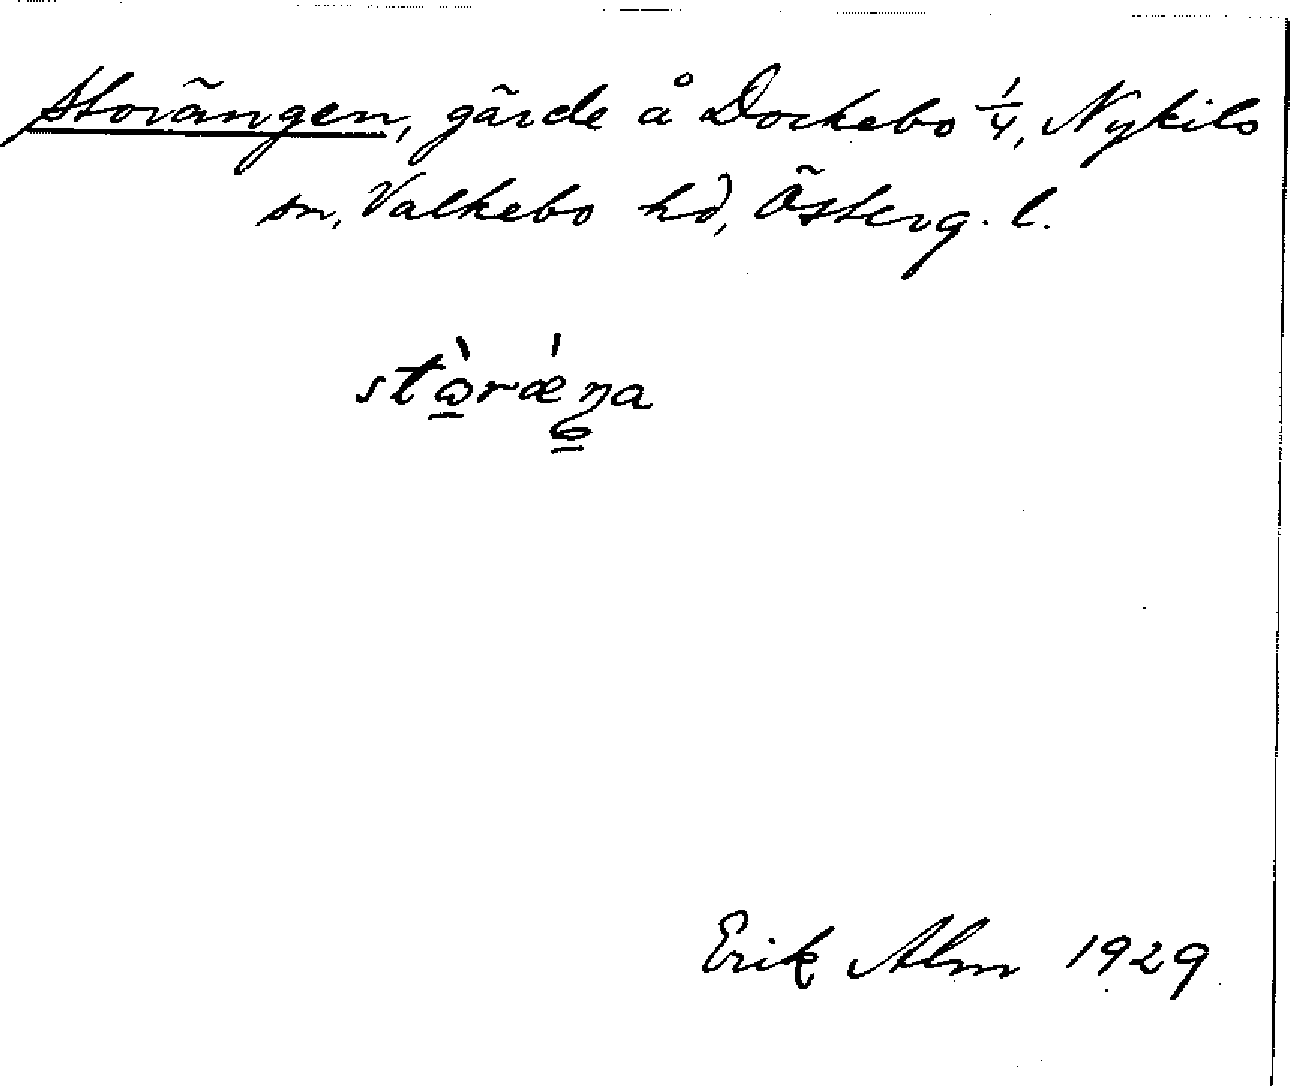 Storängen, gärde å Dockebo 1/4, Nykils
sn, Valkebo hd, Österg. l.
stὼ̲rǽŋa
Erik Alm 1929